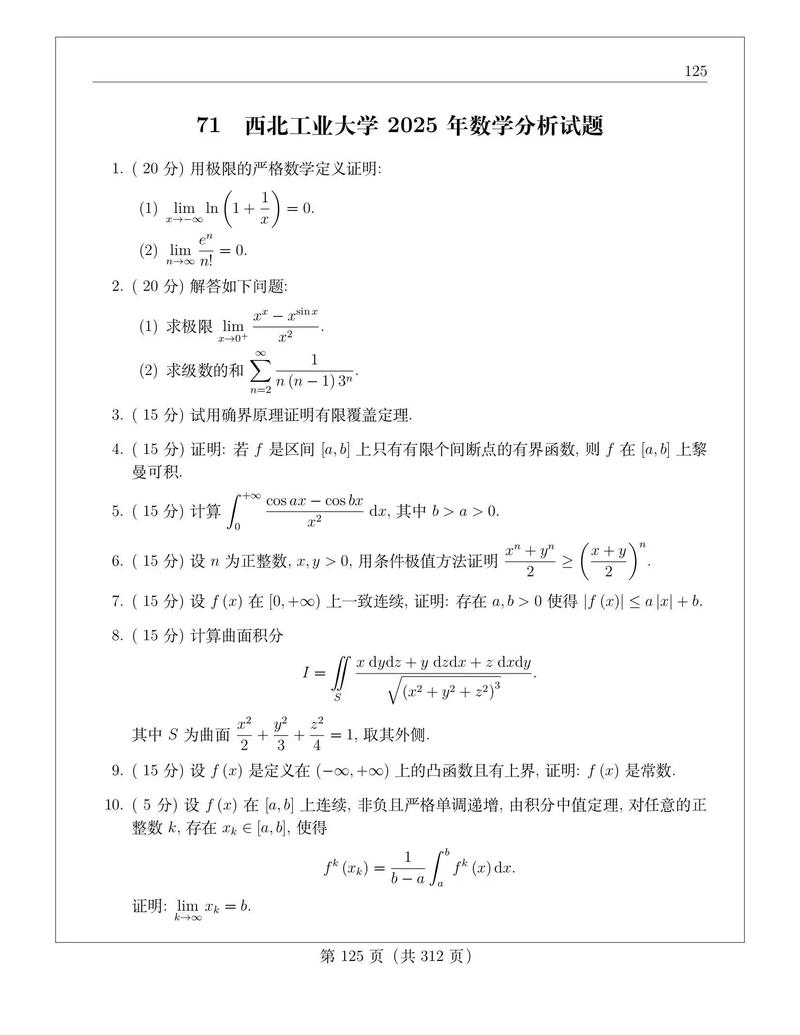 125
71 西北工业大学 2025 年数学分析试题
1. ( 20 分) 用极限的严格数学定义证明:
(1) lim_{x→−∞} ln(1 + 1/x) = 0.
(2) lim_{n→∞} e^n/n! = 0.
2. ( 20 分) 解答如下问题:
(1) 求极限 lim_{x→0^+} (x^x − x^{sin x})/x^2.
(2) 求级数的和 ∑_{n=2}^{∞} 1/(n (n − 1) 3^n).
3. ( 15 分) 试用确界原理证明有限覆盖定理.
4. ( 15 分) 证明: 若 f 是区间 [a, b] 上只有有限个间断点的有界函数, 则 f 在 [a, b] 上黎
曼可积.
5. ( 15 分) 计算 ∫_0^{+∞} (cos ax − cos bx)/x^2 dx, 其中 b > a > 0.
6. ( 15 分) 设 n 为正整数, x, y > 0, 用条件极值方法证明 (x^n + y^n)/2 ≥ ((x + y)/2)^n.
7. ( 15 分) 设 f (x) 在 [0, +∞) 上一致连续, 证明: 存在 a, b > 0 使得 |f (x)| ≤ a |x| + b.
8. ( 15 分) 计算曲面积分
I = ∬_S (x dydz + y dzdx + z dxdy)/√((x^2 + y^2 + z^2)^3).
其中 S 为曲面 x^2/2 + y^2/3 + z^2/4 = 1, 取其外侧.
9. ( 15 分) 设 f (x) 是定义在 (−∞, +∞) 上的凸函数且有上界, 证明: f (x) 是常数.
10. ( 5 分) 设 f (x) 在 [a, b] 上连续, 非负且严格单调递增, 由积分中值定理, 对任意的正
整数 k, 存在 x_k ∈ [a, b], 使得
f^k (x_k) = 1/(b − a) ∫_a^b f^k (x) dx.
证明: lim_{k→∞} x_k = b.
第 125 页（共 312 页）